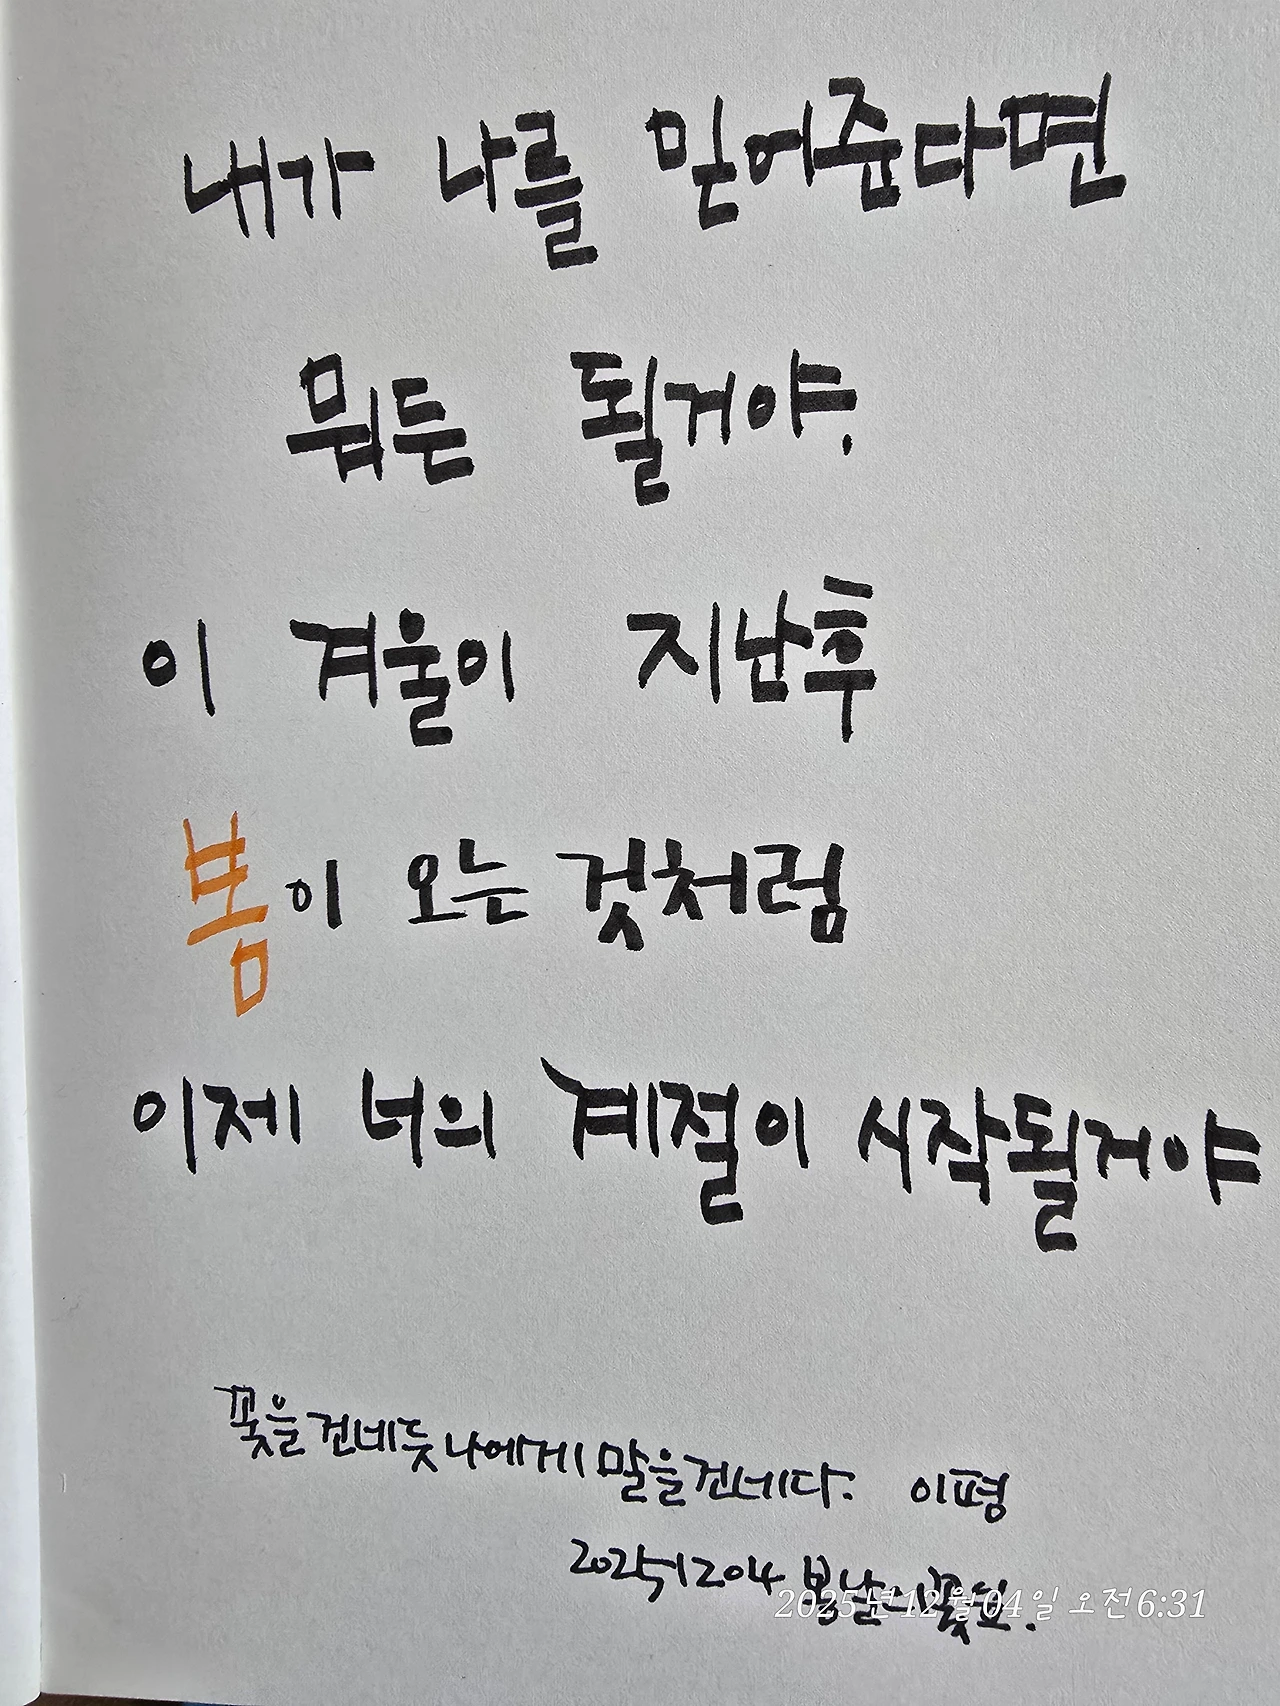 내가 나를 믿어준다면
뭐든 될거야.
이 겨울이 지난후
봄이 오는 것처럼
이제 너의 계절이 시작될거야
꽃을 건네듯 나에게 말을건네다. 이평
20251204 봄날의
2025년 12월 04일 오전 6:31